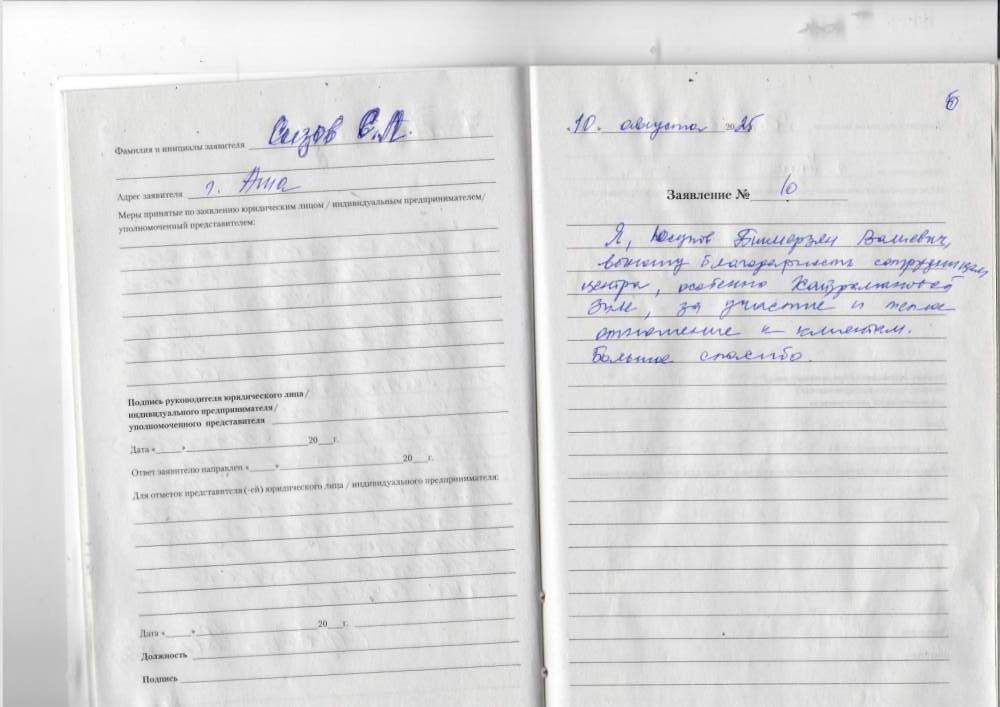 Фамилия и инициалы заявителя Сызов С.А.
Адрес заявителя г. Аша
Меры принятые по заявлению юридическим лицом / индивидуальным предпринимателем/
уполномоченный представителем:
Подпись руководителя юридического лица /
индивидуального предпринимателя/
уполномоченного представителя
Дата «____»____20__г.
Ответ заявителю направлен «____»____20__г.
Для отметок представителя (-ей) юридического лица / индивидуального предпринимателя:
Дата «____»____20__г.
Должность
Подпись
6
«10» августа 2025
Заявление № 10
Я, Юсупов Валиевич,
выношу благодарность сотрудникам
центра, особенно
за участие и теплое
отношение к клиентам.
Большое спасибо.